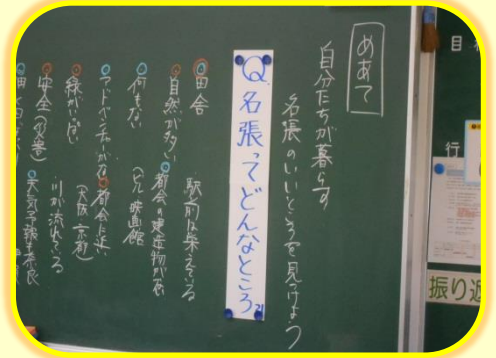 めあて
自分たちが暮らす
名張のいいところを見つけよう
Q.名張ってどんなところ?
田舎
駅前は栄えている
自然が多い
都会の建物がない
何もない
映画館
アドベンチャーが
都会に近い
(大阪 京都)
緑がいっぱい
川が流れている
安全
天気予報も奈良
目
行
振り返